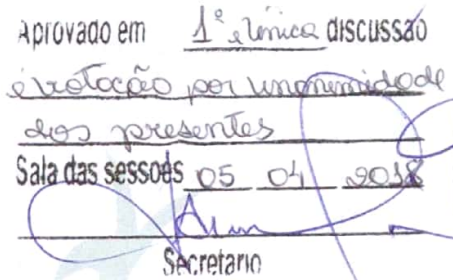 Aprovado em 1ª e única discussão
e votação por unanimidade
dos presentes
Sala das sessões 05 04 2018
Secretário